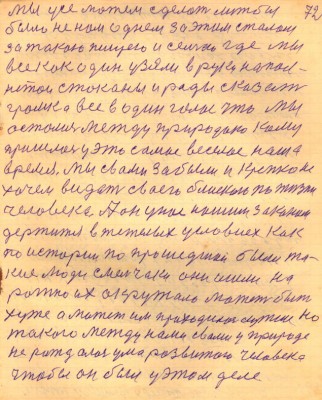 мы усе можем сделат лиш бы 72
было не ном однем за этим сталом
за такою пищею и семю где мы
все как один узяли в руки напол-
нитой стаканы и рады сказат
громка все в один голас что мы
астоимс между природаю каму
пришлас у это самае веселае наша
время. Мы свами забыли и крепко не
хочем видат своего близкаго по жизни
человека. А он у нас нашим законам
держится в тяжелых условиях как
по истории по прошедшай были та-
кие люди смелчаки они ишли на
их окружало может быт
хуже а может им приходилас лутше но
такого между нами свами у природе
не раждалос ума развитого человека
чтобы он был у этом деле